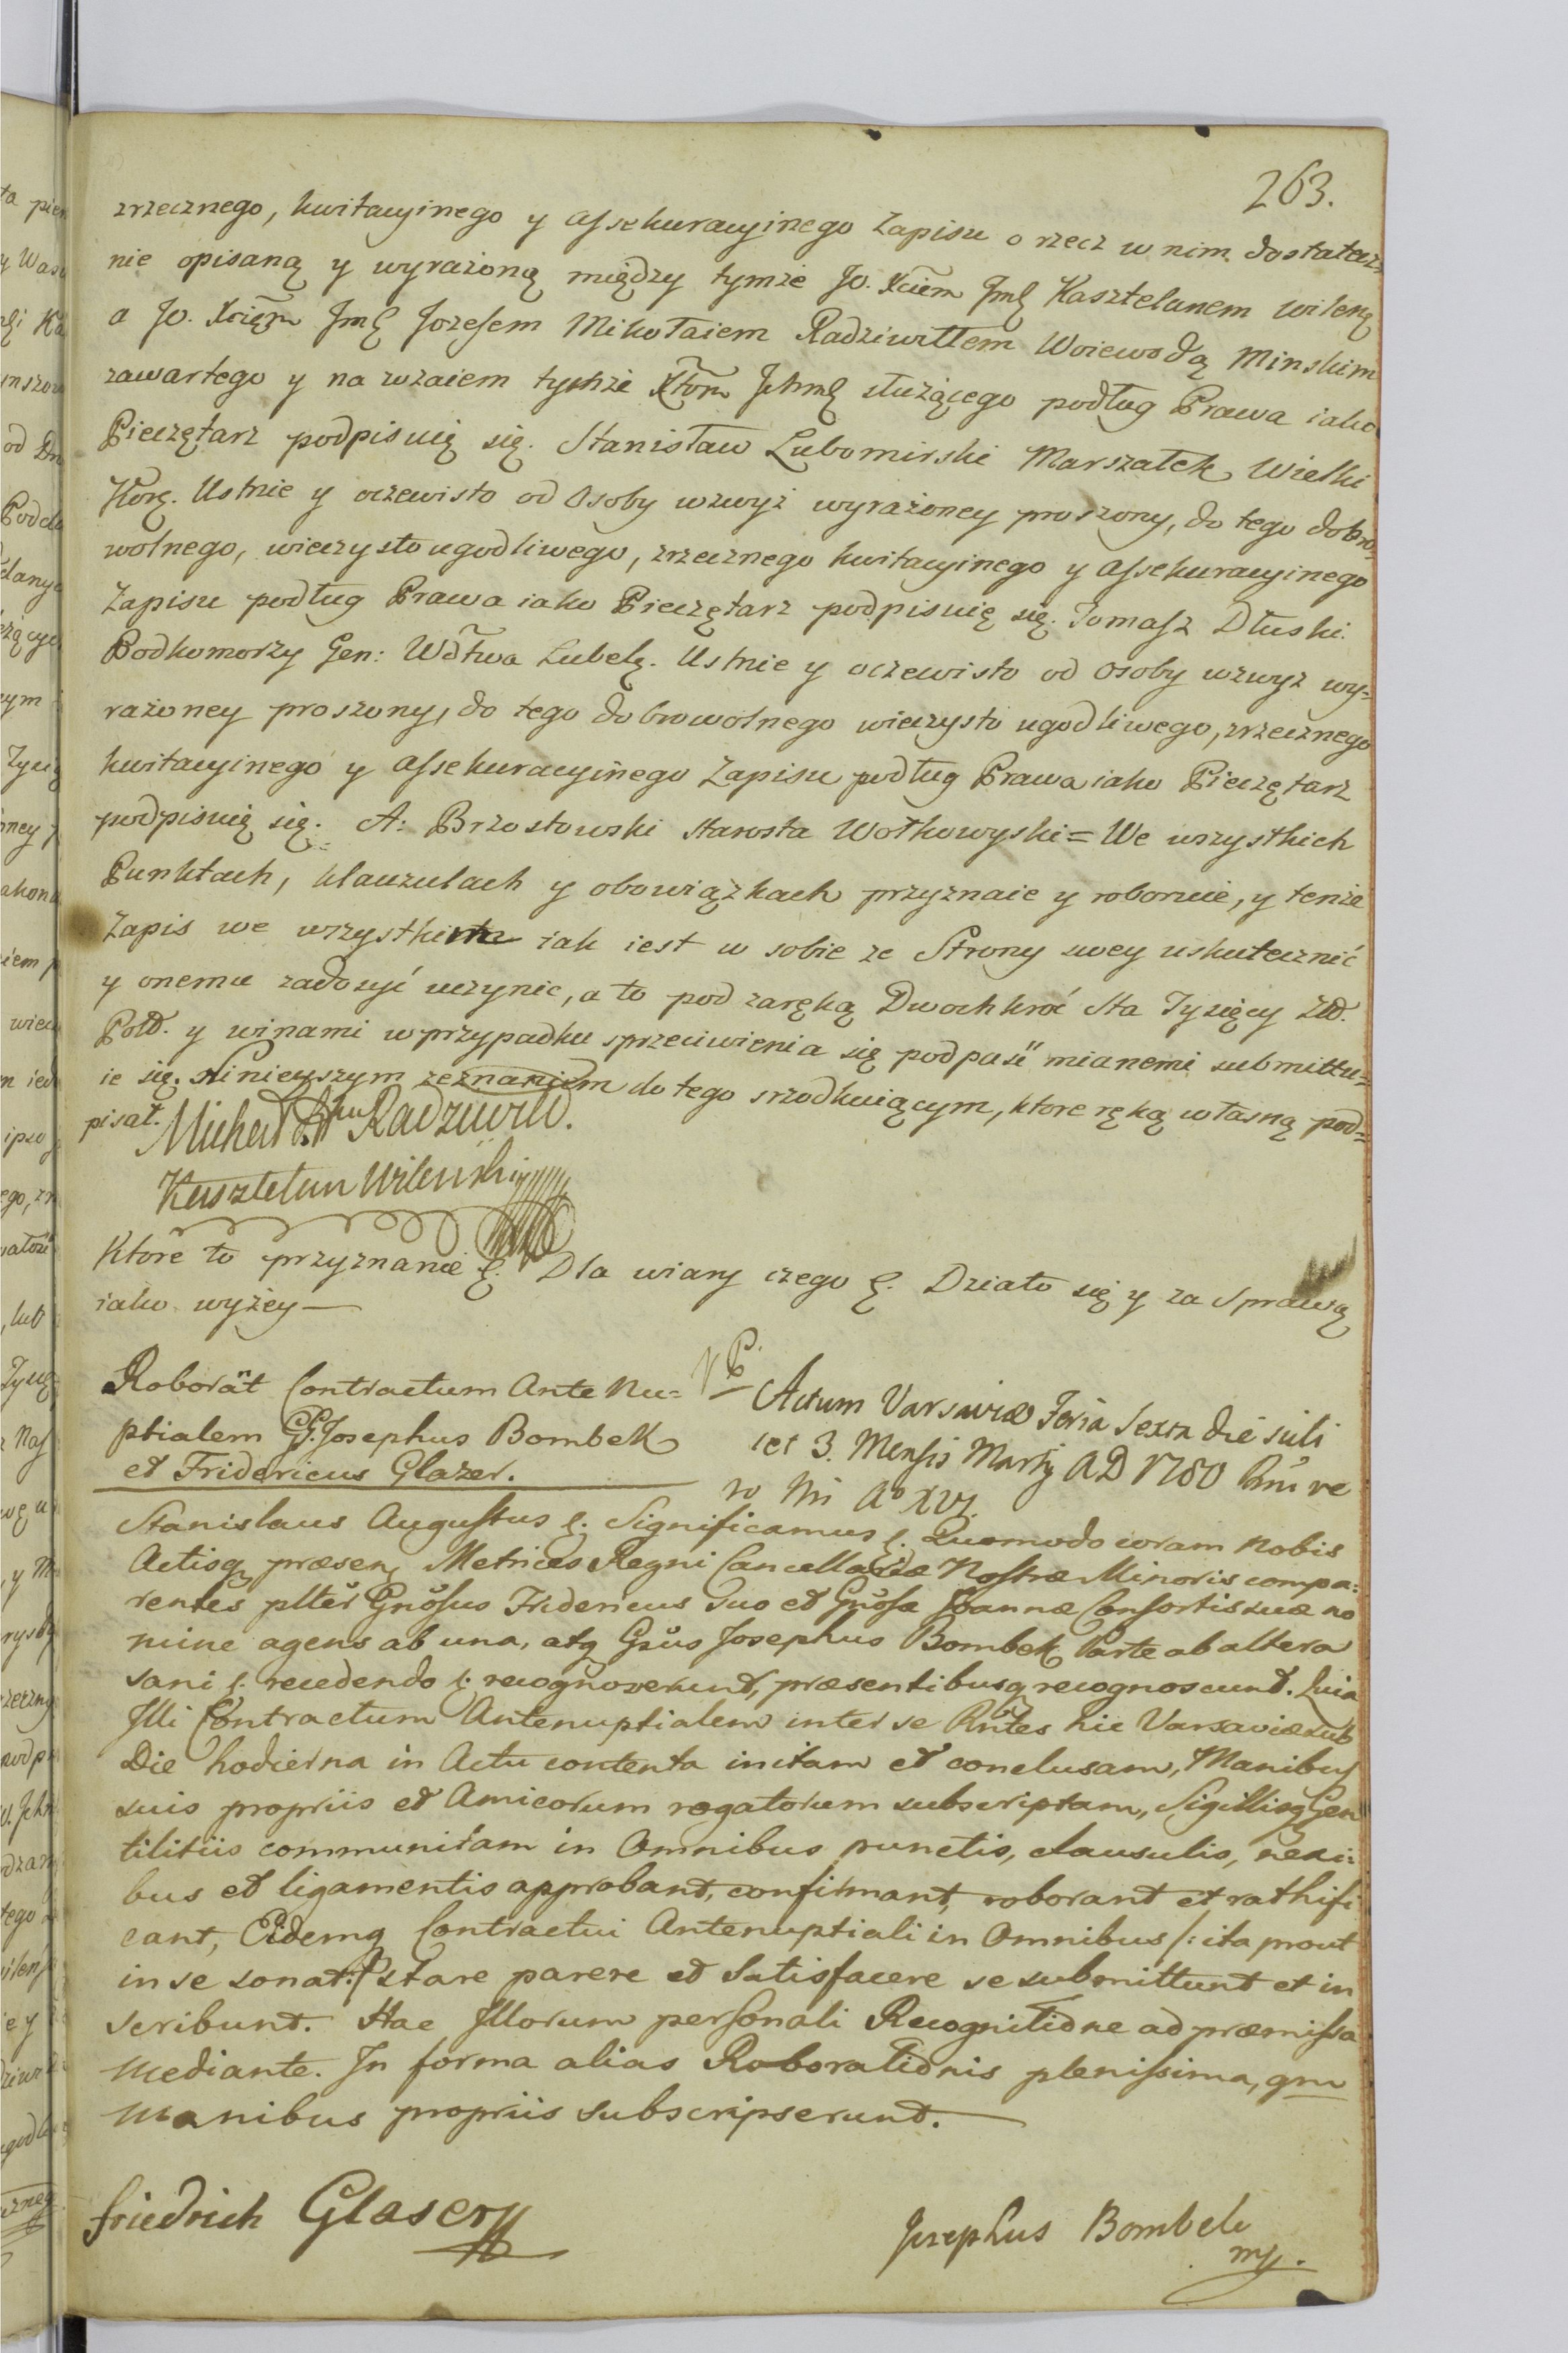 263.
zrzecznego, kwitacyinego y assekuracyinego Zapisu o rzecz w nim dostatecz=
nie opisaną y wyrażoną między tymże Jo. Xciem Jmę Kasztelanem wileną
a Jo. Xcięm Jmę Jozefem Mikołaiem Radziwiłłem Woiewodą Minskim
zawartego y na wzaiem tychże Xtom Jchmę służącego podług Prawa iako
Pieczętarz podpisuię się. Stanisław Lubomirski Marszałek Wielki
Korę. Ustnie y oczewisto od Osoby wzwyż wyrażoney proszony, do tego dobro=
wolnego, wieczysto ugodliwego, zrzecznego kwitacyinego y assekuracyinego
Zapisu podług Prawa iako Pieczętarz podpisuię się. Tomasz Dłuski
Podkomorzy Gen: Wdtwa Lubelę. Ustnie y oczewisto od Osoby wzwyz wy=
rażoney proszony, do tego dobrowolnego wieczysto ugodliwego, zrzecznego
kwitacyinego y assekuracyinego Zapisu podług Prawa iako Pieczętarz
podpisuię się. A: Brzostowski Starosta Wołkowyski = We wszystkich
Punktach, klauzulach y obowiązkach przyznaie y roboruie, y tenże
Zapis we wszystkim iak iest w sobie ze Strony swey uskutecznić
y onemu zadosyć uczynic, a to pod zaręką Dwoch kroć Sta Tysięcy Złł.
Pold. y winami w przypadku sprzeciwienia się podpaść mianemi submittu=
ie się. Ninieyszym zeznaniem do tego srzodkuiącym, ktore ręką własną pod=
pisał.
Michał Radziwiłł.
Kasztelan Wilenski
Ktore to przyznanie ę. Dla wiary czego ę. Działo się y za Sprawą
iako wyżey —
Roborant Contractum Ante Nu=
ptialem GG. Josephus Bombek
et Fridericus Glazer.
Actum Varsaviæ Feria Sexta die scili
cet 3. Mensis Martij AD 1780 Rni ve
ro Nri Ao XVI.
Stanislaus Augustus ę. Significamus ę. Quomodo coram Nobis
Actisq præsen Metrices Regni Cancellariæ Nostræ Minoris compa=
rentes plter Gnosus Fridericus Suo et Gnosæ Joannæ Consortis suæ no
mine agens ab una, atq Gsus Josephus Bombek Parte ab altera
sani ę. recedendo ę. recognoverunt, præsentibusq recognoscunt. Quia
Illi Contractum Antenuptialem inter se Rntes hic Varsaviæ sub
Die hodierna in Actu contenta initam et conclusam, Manibus
suis propriis et Amicorum rogatorum subscriptam, Sigillisq Gen
tilitiis communitam in Omnibus punctis, clausulis, nexi=
bus et ligamentis approbant, confirmant, roborant et rathifi
cant, Eidemq Contractui Antenuptiali in Omnibus /: ita prout
in se sonat :/ stare parere et Satisfacere se submittunt et in
scribunt. Hac Illorum personali Recognitione ad præmissa
Mediante. In forma alias Roborationis plenissima, qm
Manibus propriis subscripserunt.
Friedrich Glaser
Josephus Bombek
mp.